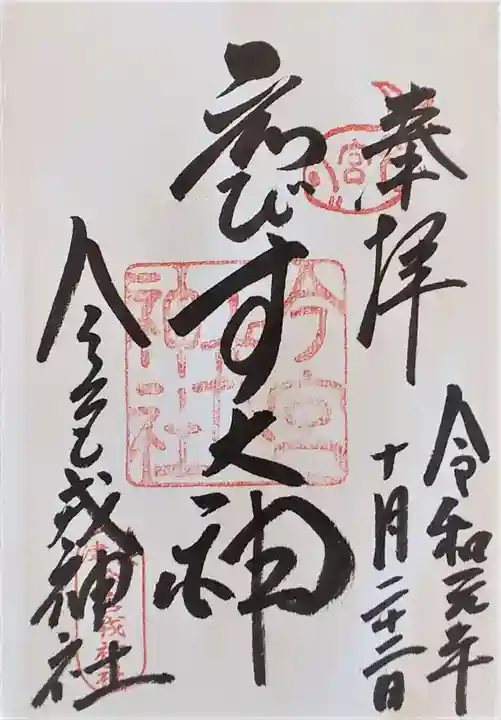 奉拝
令和元年
十月二十二日
ゑびす大神
今宮戎神社
今宮
戎
神社
宮